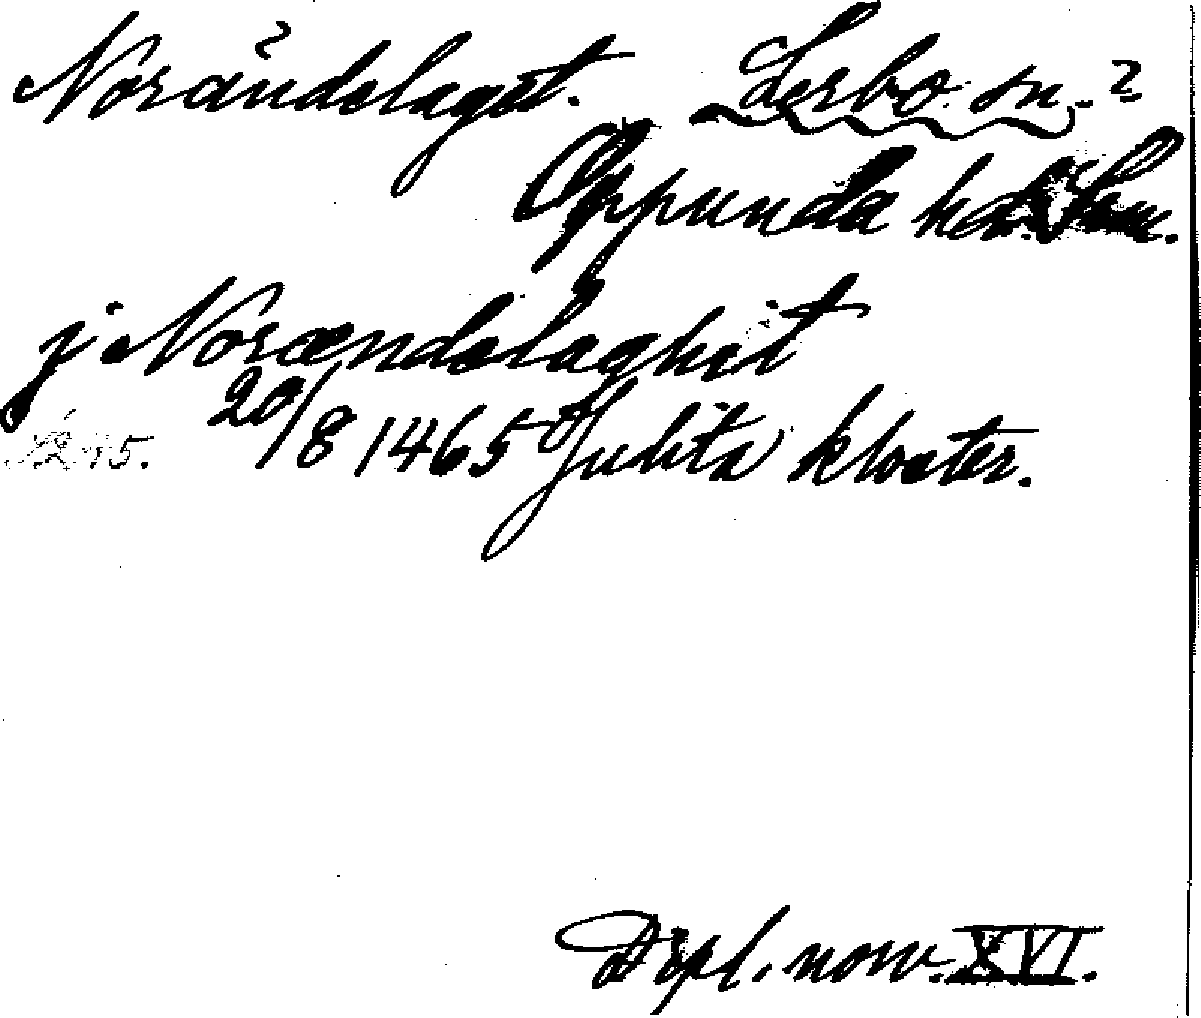 Norändelaget. Lerbo sn.?
Oppunda hd. Söm.
j Norændelaghit
20/8 1465 Julita kloster.
Dipl. norv. XVI.